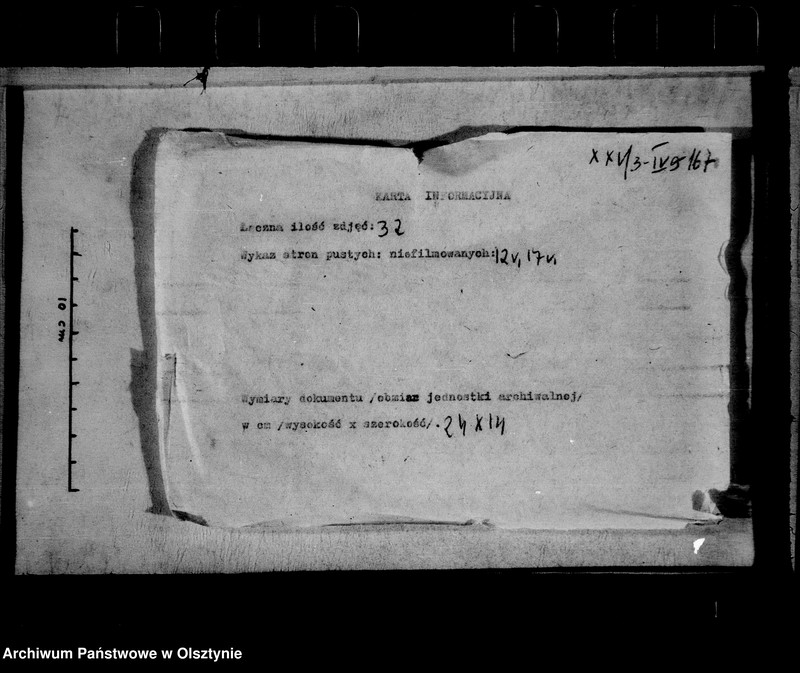 XXVI/3-IV9-167
KARTA INFORMACYJNA
Łączna ilość zdjęć: 32
Wykaz stron pustych: niefilmowanych: 12v, 17v,
10 cm
Wymiary dokumentu /obmiar jednostki archiwalnej/
w cm /wysokość x szerokość/. 24 x 14
Archiwum Państwowe w Olsztynie